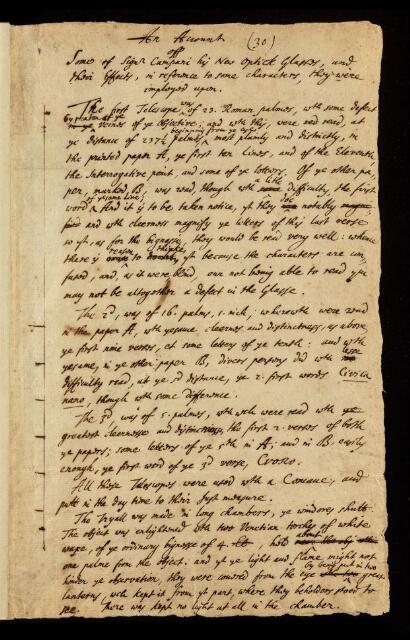 An Account (30)
off
Some of Sigr Campani his New Optick Glasses, and
their Effects, in reference to some characters, they were
imployed upon.
The first Telescope, was of 23. Roman palmes, wth some defect
by reason of ye
veines of ye Objective; and wth this, were read, at
beginning from ye eye
ye distance of 237½ palmes, most plainly and distinctly, in
the printed paper A, ye first ten Lines, and of the Eleventh,
the Interrogative point, and some of ye letters. Of ye other pa,
a little
per, marked B, was read, though wth difficulty, the first
of ye same line;
word. And it is to be taken notice, yt they doe notably
and wth cleernes magnify ye letters of this last verse
so yt, as for the bignesse, they would be read very well: whence
reason
there is to yt because the characters are con,
fused, and, as it were, blind, our not being able to read ym
may not be altogether a defect in the Glasse.
The 2d, was of 16. palms, 1. inch; wherewith were read
in the paper A, wth ye same cleernes and distinctness, as above,
ye first nine verses, et some letters of ye tenth: and wth
lesse
ye same, in ye other paper B, divers persons did wth
difficulty read, at ye sd distance, ye 2. first words Civita
nano, though wth some difference.
The 3d was of 5. palms, wth wch were read wth
greatest cleernesse and distinctness, the first 2 verses of both
ye papers; some letters of ye 5th in A; and in B. easily
enough, ye first word of ye 3d verse, Crotco.
All these Telescopes were used with a Concave, and
putt in the day time to their just measure.
The Tryall was made in long chambers, ye windores shutt.
The object was enlightned wth two Venetian torches of white
waxe, of ye ordinary bignesse of 4. held about
one palme from the object. and yt ye light and flame might not
by being put in two
hinder ye observation, they were covered from the eye great
lanterns, wch kept it from yt part, where they beholders stood to
see. There was kept no light at all in the chamber.